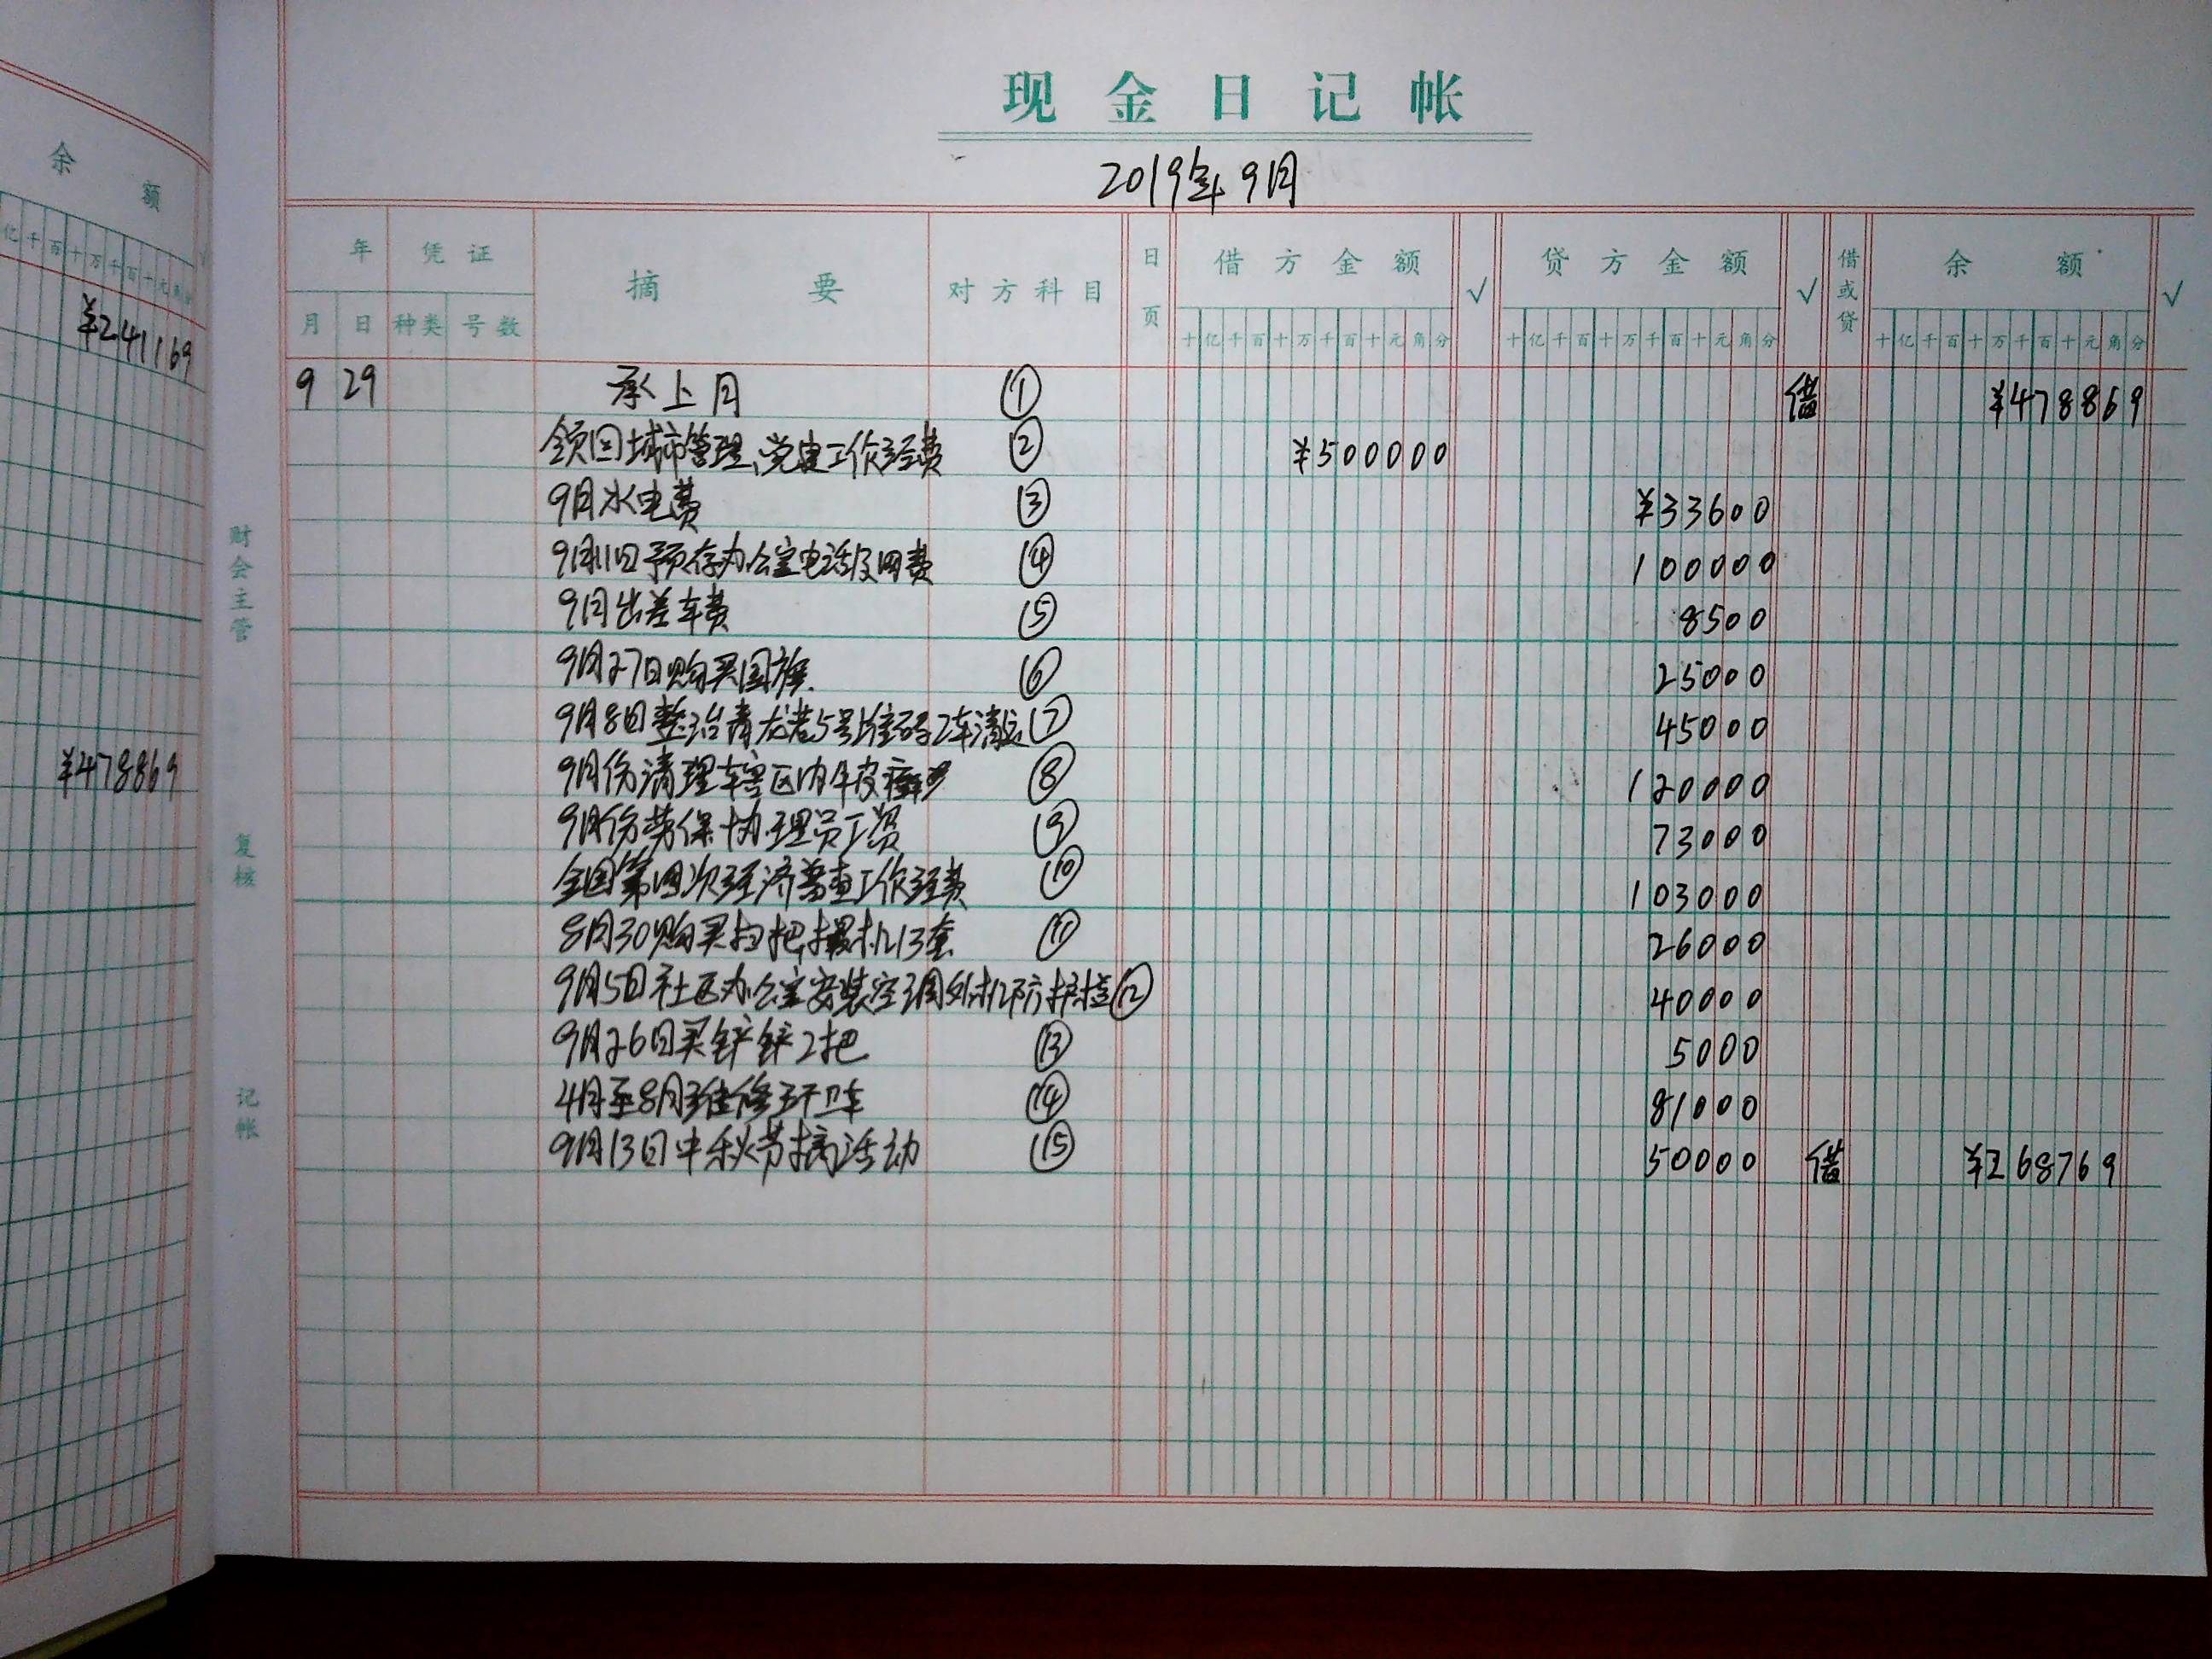 余 额
亿 千 百 十 万 千 百 十 元 角 分
¥241169
¥478869
现 金 日 记 帐
2019年9月
年 凭 证 摘 要 对方科目 日页 借方金额 √ 贷方金额 √ 借或贷 余 额 √
月 日 种类 号数 十亿千百十万千百十元角分 十亿千百十万千百十元角分 十亿千百十万千百十元角分
9 29 承上月 ① 借 ¥478869
领回城市管理、党建工作经费 ② ¥500000
9月水电费 ③ ¥33600
9月11日预存办公室电话及网费 ④ 100000
9月出差车费 ⑤ 8500
9月27日购买国旗 ⑥ 25000
9月8日整治青龙巷5号堆码2车清运 ⑦ 45000
9月份清理辖区内牛皮癣 ⑧ 120000
9月份劳保协理员工资 ⑨ 73000
全国第四次经济普查工作经费 ⑩ 103000
8月30购买扫把,撮机13套 ⑪ 26000
9月5日社区办公室安装空调外机防护栏 ⑫ 40000
9月26日买铲铲2把 ⑬ 5000
4月至8月维修环卫车 ⑭ 81000
9月13日中秋节搞活动 ⑮ 50000 借 ¥268769
财会主管
复核
记帐